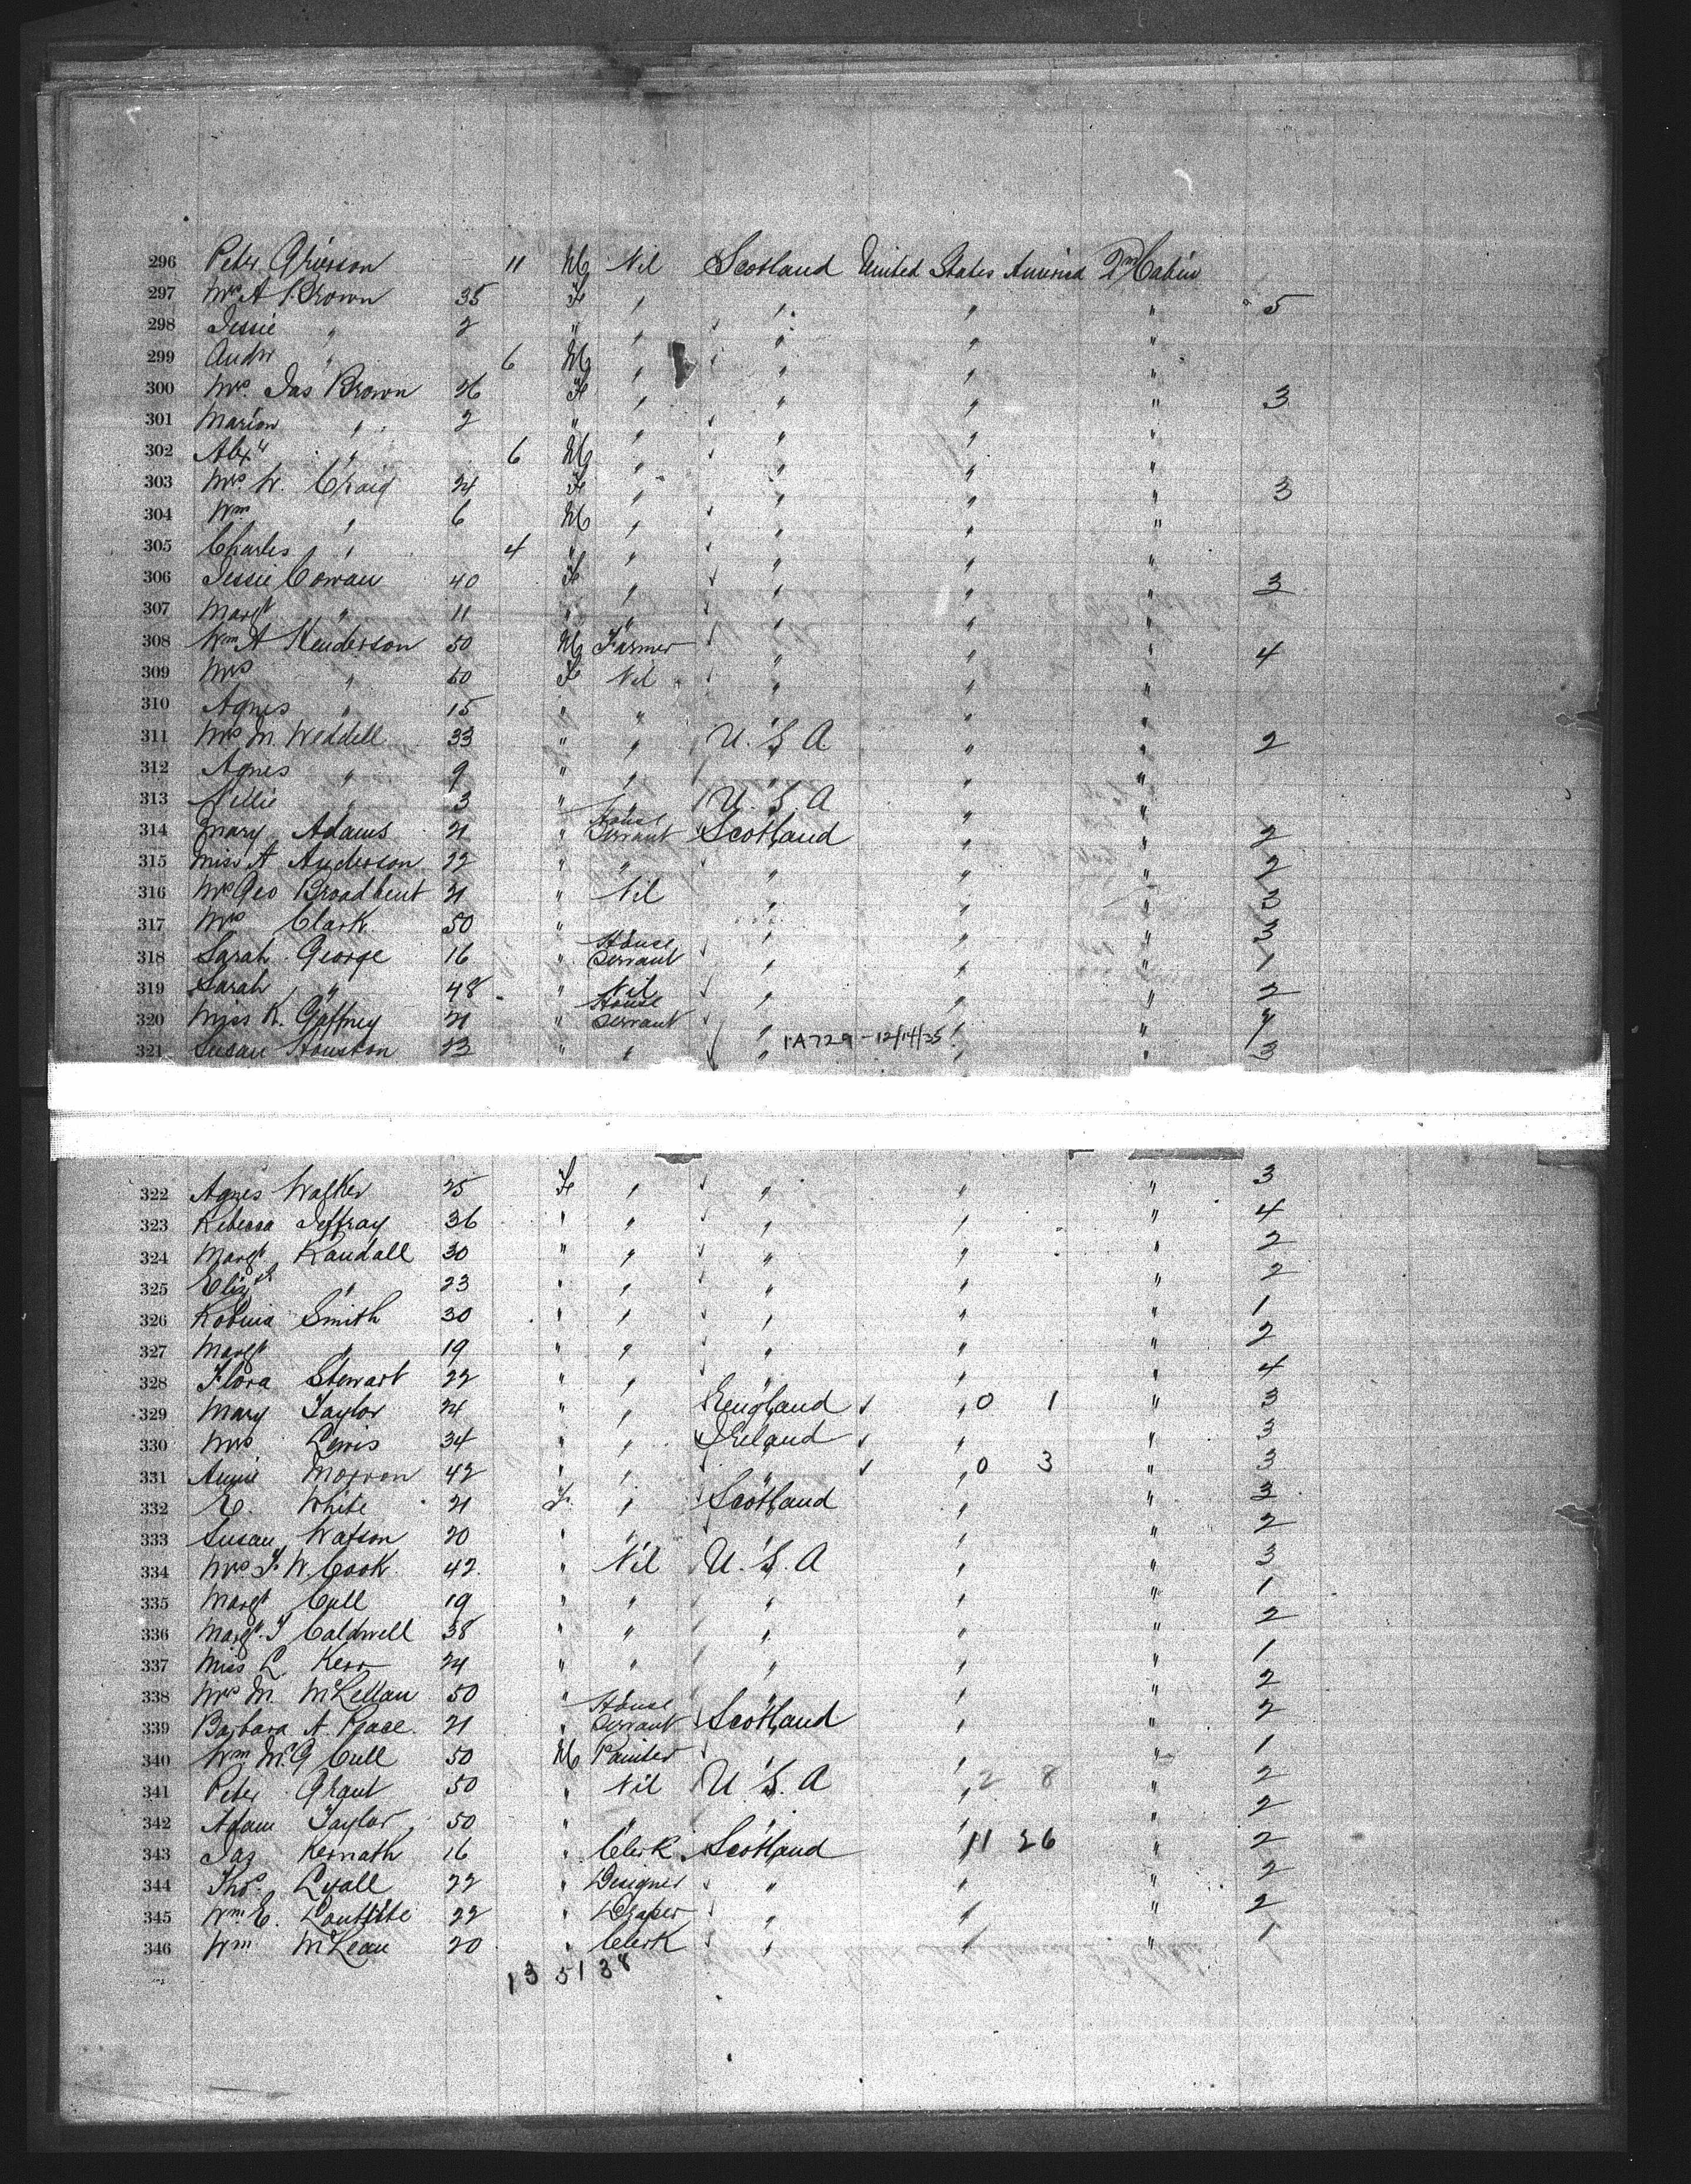 296 Peter Grierson 11 M Nil Scotland United States America 2nd Cabin
297 Mrs A Brown 35 F " " " " 5
298 Jessie " 2 " " " " "
299 Andw " 6 M " " " "
300 Mrs. Jas Brown 26 F " " " " 3
301 Marion " 2 " " " " "
302 Alexr " 6 M " " " "
303 Mrs. W. Craig 24 F " " " " 3
304 Wm " 6 M " " " "
305 Charles " 4 " " " " "
306 Jessie Cowan 40 F " " " " 3
307 Margt " 11 " " " " "
308 Wm A Henderson 50 M Farmer " " " 4
309 Mrs " 50 F Nil " " "
310 Agnes " 15 " " " " "
311 Mrs M. Weddell 33 " " U.S.A " " 2
312 Agnes " 9 " " " " "
313 Nellie " 3 " " U.S.A " "
314 Mary Adams 21 " House Servant Scotland " " 2
315 Miss A Anderson 22 " " " " " 2
316 Mrs Geo Broadbent 21 " Nil " " " 3
317 Mrs Clark 50 " " " " " 3
318 Sarah George 16 " House Servant " " " 1
319 Sarah " 48 " Nil " " " 2
320 Miss K. Gaffney 21 " House Servant " " "
1A729 - 12/14/25
321 Susan Houston 23 " " " " " 3
322 Agnes Walker 25 F " " " " 3
323 Rebecca Jeffray 36 " " " " " 4
324 Margt Randall 30 " " " " " 2
325 Elizth " 23 " " " " " 2
326 Robina Smith 30 " " " " " 1
327 Margt " 19 " " " " " 2
328 Flora Stewart 22 " " " " " 4
329 Mary Taylor 24 " " England " 0 1 " 3
330 Mrs Lewis 34 " " Ireland " " 3
331 Annie Morron 42 " " " " 0 3 " 3
332 E. White 21 F. " Scotland " " 3
333 Susan Watson 20 " " " " " 2
334 Mrs. F. W. Cook 42 " Nil U.S.A " " 3
335 Margt Cull 19 " " " " " 1
336 Margt. T Caldwell 38 " " " " " 2
337 Miss L. Kerr 24 " " " " " 1
338 Mrs M. McLellan 50 " " " " " 2
339 Barbara A. Peace 21 " House Servant Scotland " " 2
340 Wm McG Cull 50 M Painter " " " 1
341 Peter Grant 50 " Nil U.S.A " 2 8 " 2
342 Adam Taylor 50 " " " " " 2
343 Jas Kernath 16 " Clerk Scotland 11 26 " 2
344 Thos. Lyall 22 " Designer " " " 2
345 Wm. E. Louttite 22 " Draper " " " 2
346 Wm McLean 20 " Clerk " " " 1
13 51 38